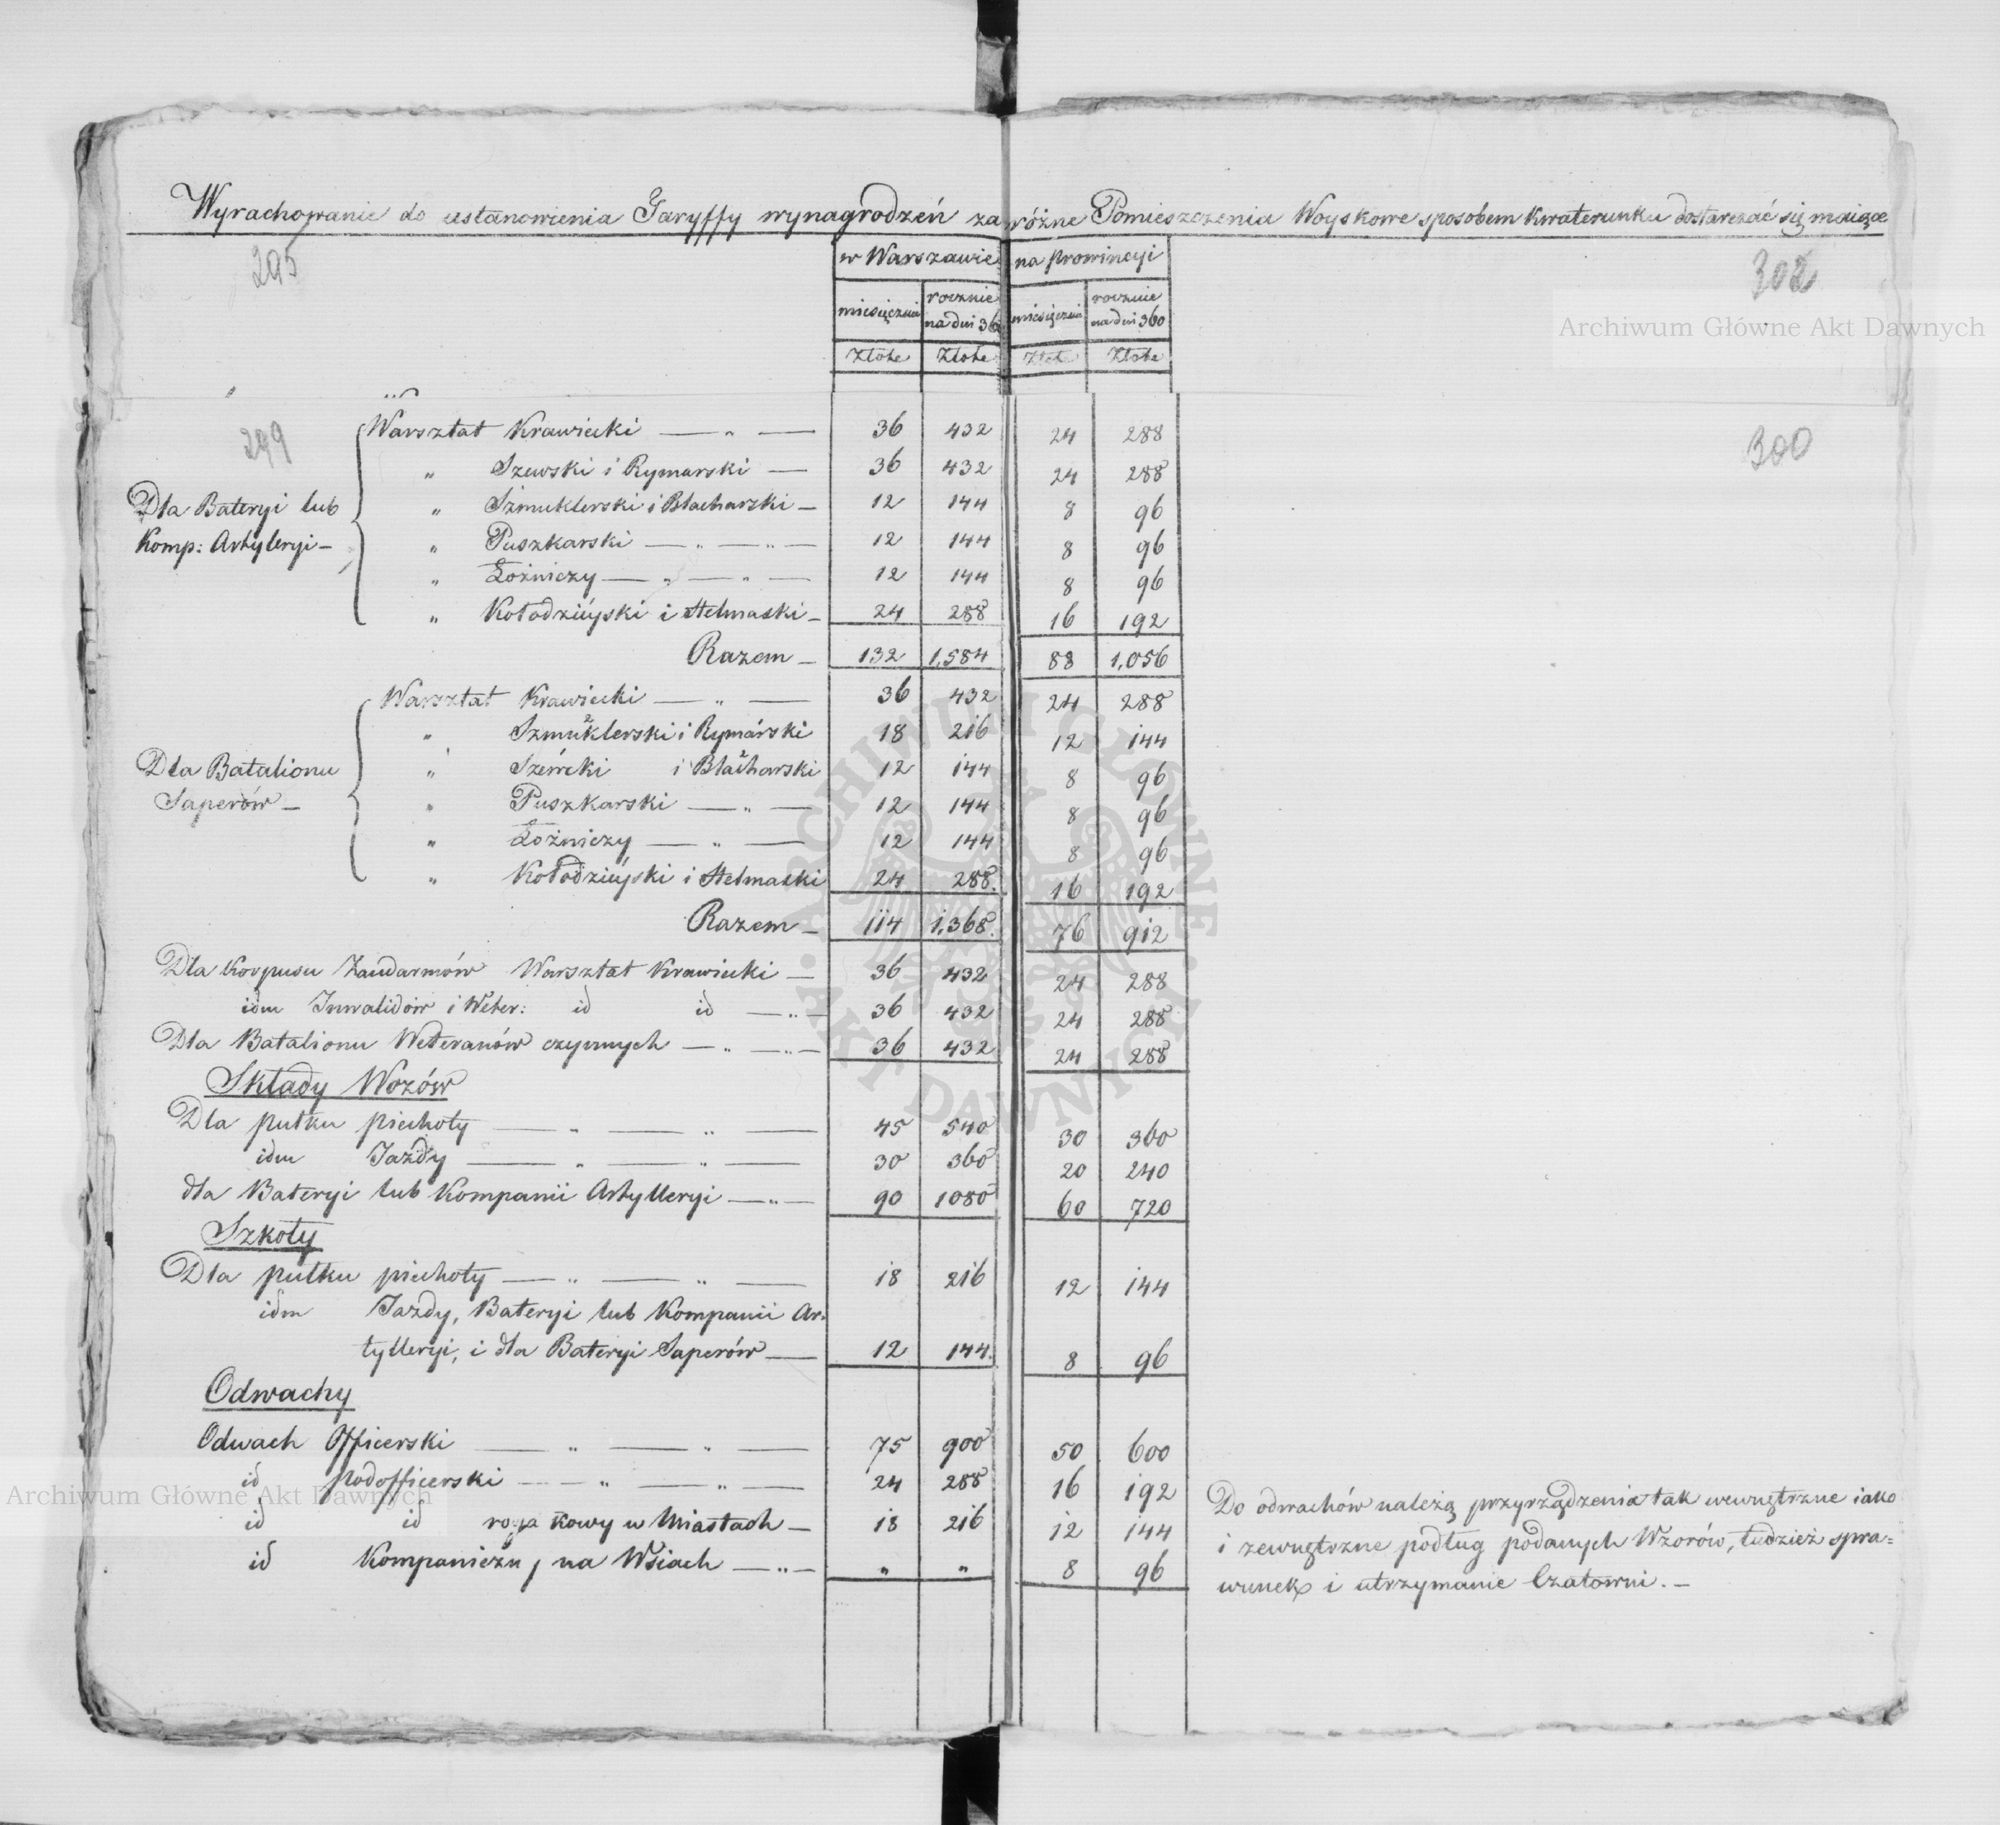 Wyrachowanie do ustanowienia Taryffy wynagrodzeń za różne Pomieszczenia Woyskowe sposobem Kwaterunku dostarczać się maiące
295
302
w Warszawie na prowincyi
miesięcznie rocznie na dni 360 miesięcznie rocznie na dni 360
Złote Złote Złote Złote
Archiwum Główne Akt Dawnych
299
300
Dla Bateryi lub
Komp: Artyleryi —
Warsztat Krawiecki — „ — 36 432 24 288
„ Szewski i Rymarski — 36 432 24 288
„ Szmuklerski i Blacharski — 12 144 8 96
„ Puszkarski — „ — „ — 12 144 8 96
„ Łożniczy — „ — „ — 12 144 8 96
„ Kołodziéyski i Stelmaski — 24 288 16 192
Razem — 132 1,584 88 1,056
Dla Batalionu
Saperów —
Warsztat Krawiecki — „ — 36 432 24 288
„ Szmuklerski i Rymarski 18 216 12 144
„ Szewcki i Blacharski 12 144 8 96
„ Puszkarski — „ — 12 144 8 96
„ Łożniczy — „ — 12 144 8 96
„ Kołodziéyski i Stelmaski 24 288. 16 192
Razem — 114 1,368. 76 912
Dla Korpusu Żandarmów Warsztat Krawiecki — 36 432 24 288
idm Inwalidów i Weter: id id — „ — 36 432 24 288
Dla Batalionu Weteranów czynnych — „ — „ — 36 432 24 288
Składy Wozów
Dla pułku piechoty — „ — „ — 45 540 30 360
idm Jazdy — „ — „ — 30 360 20 240
dla Bateryi lub Kompanii Artylleryi — „ — 90 1080 60 720
Szkoły
Dla pułku piechoty — „ — „ — 18 216 12 144
idm Jazdy, Bateryi lub Kompanii Ar-
tylleryi, i dla Bateryi Saperów — 12 144. 8 96
Odwachy
Odwach Officerski — „ — „ — 75 900 50 600
id podofficerski — „ — „ — 24 288 16 192
id id kowy w Miastach — 18 216 12 144
id Kompaniczny na Wsiach — „ — „ „ 8 96
Do odwachów należą przyrządzenia tak wewnętrzne iako
i zewnętrzne podług podanych Wzorów, tudzież spra=
wunek i utrzymanie Czatowni. —
Archiwum Główne Akt Dawnych
ARCHIWUM GŁÓWNE AKT DAWNYCH